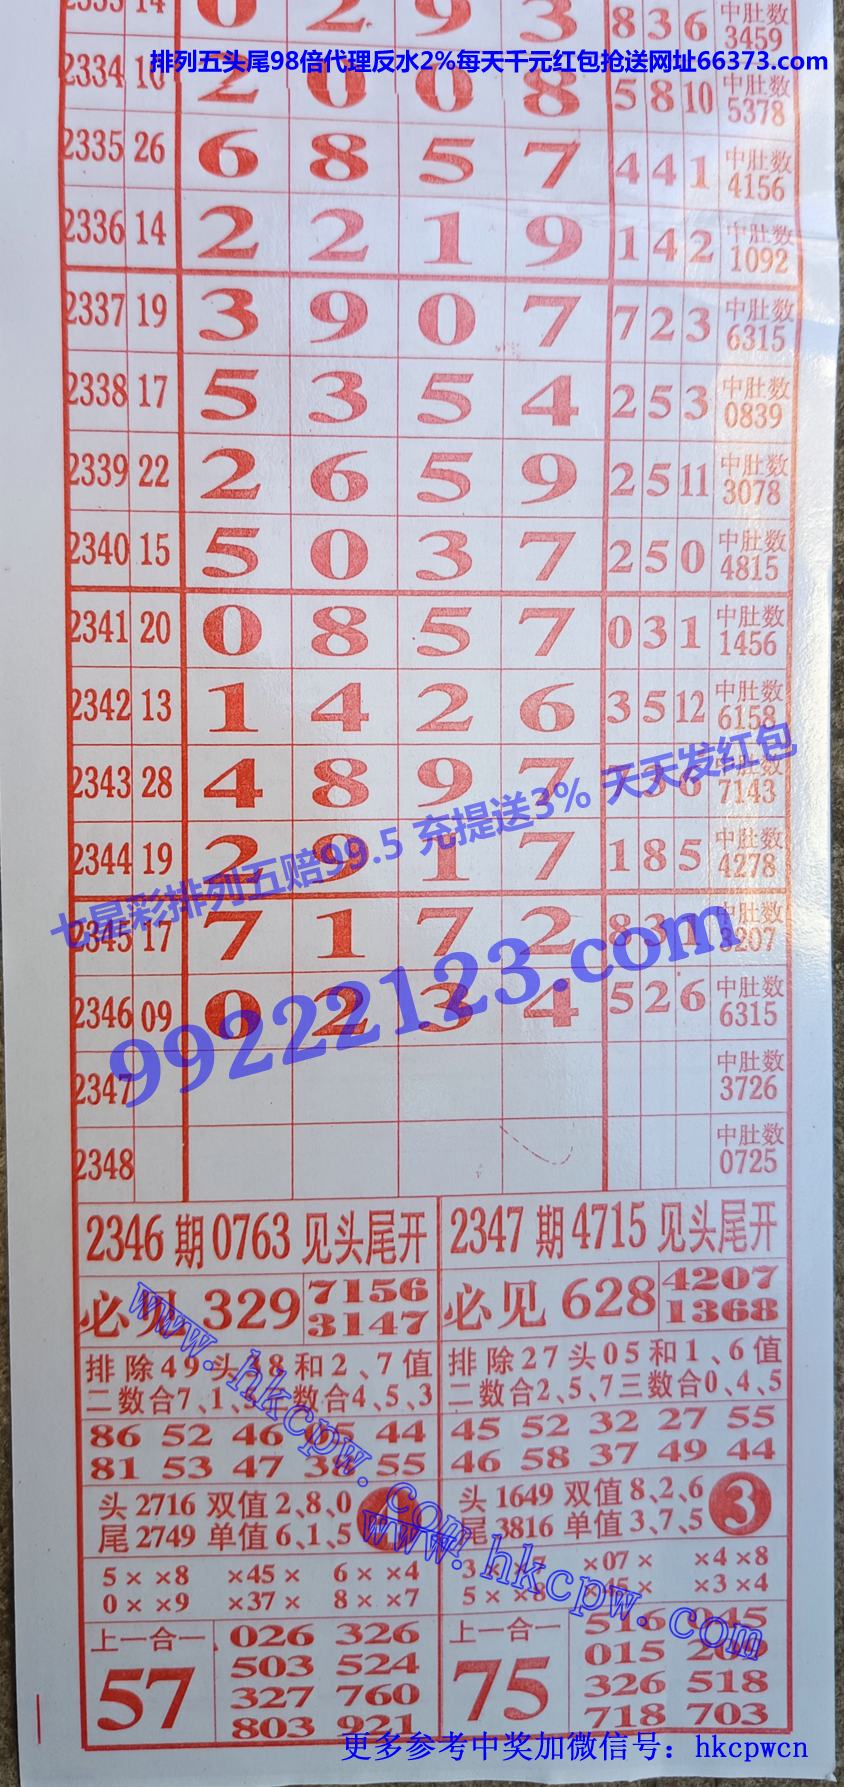 2333 14 0 2 9 3 8 3 6 中肚数 3459
排列五头尾98倍代理反水2%每天千元红包抢送网址66373.com
2334 10 2 0 0 8 5 8 10 中肚数 5378
2335 26 6 8 5 7 4 4 1 中肚数 4156
2336 14 2 2 1 9 1 4 2 中肚数 1092
2337 19 3 9 0 7 7 2 3 中肚数 6315
2338 17 5 3 5 4 2 5 3 中肚数 0839
2339 22 2 6 5 9 2 5 11 中肚数 3078
2340 15 5 0 3 7 2 5 0 中肚数 4815
2341 20 0 8 5 7 0 3 1 中肚数 1456
2342 13 1 4 2 6 3 5 12 中肚数 6158
2343 28 4 8 9 7 3 6 中肚数 7143
七星彩排列五赔99.5 充提送3% 天天发红包
2344 19 2 9 1 7 1 8 5 中肚数 4278
2345 17 7 1 7 2 8 3 1 中肚数 3207
99222123.com
2346 09 0 2 3 4 5 2 6 中肚数 6315
2347 中肚数 3726
2348 中肚数 0725
2346 期 0763 见头尾开
必见 329 7156 3147
排除49头38和2、7值
二数合7、1、三数合4、5、3
86 52 46 65 44
81 53 47 38 55
头 2716 双值 2、8、0
尾 2749 单值 6、1、5
5××8 ×45× 6××4
0××9 ×37× 8××7
上一合一 57
026 326
503 524
327 760
803 921
2347 期 4715 见头尾开
必见 628 4207 1368
排除27头05和1、6值
二数合2、5、7三数合0、4、5
45 52 32 27 55
46 58 37 49 44
头 1649 双值 8、2、6
尾 3816 单值 3、7、5
3
3××7 ×07× ×4×8
5××8 ×45× ×3×4
上一合一 75
516 045
015 269
326 518
718 703
www.hkcpw.com
www.hkcpw.com
更多参考中奖加微信号：hkcpwcn